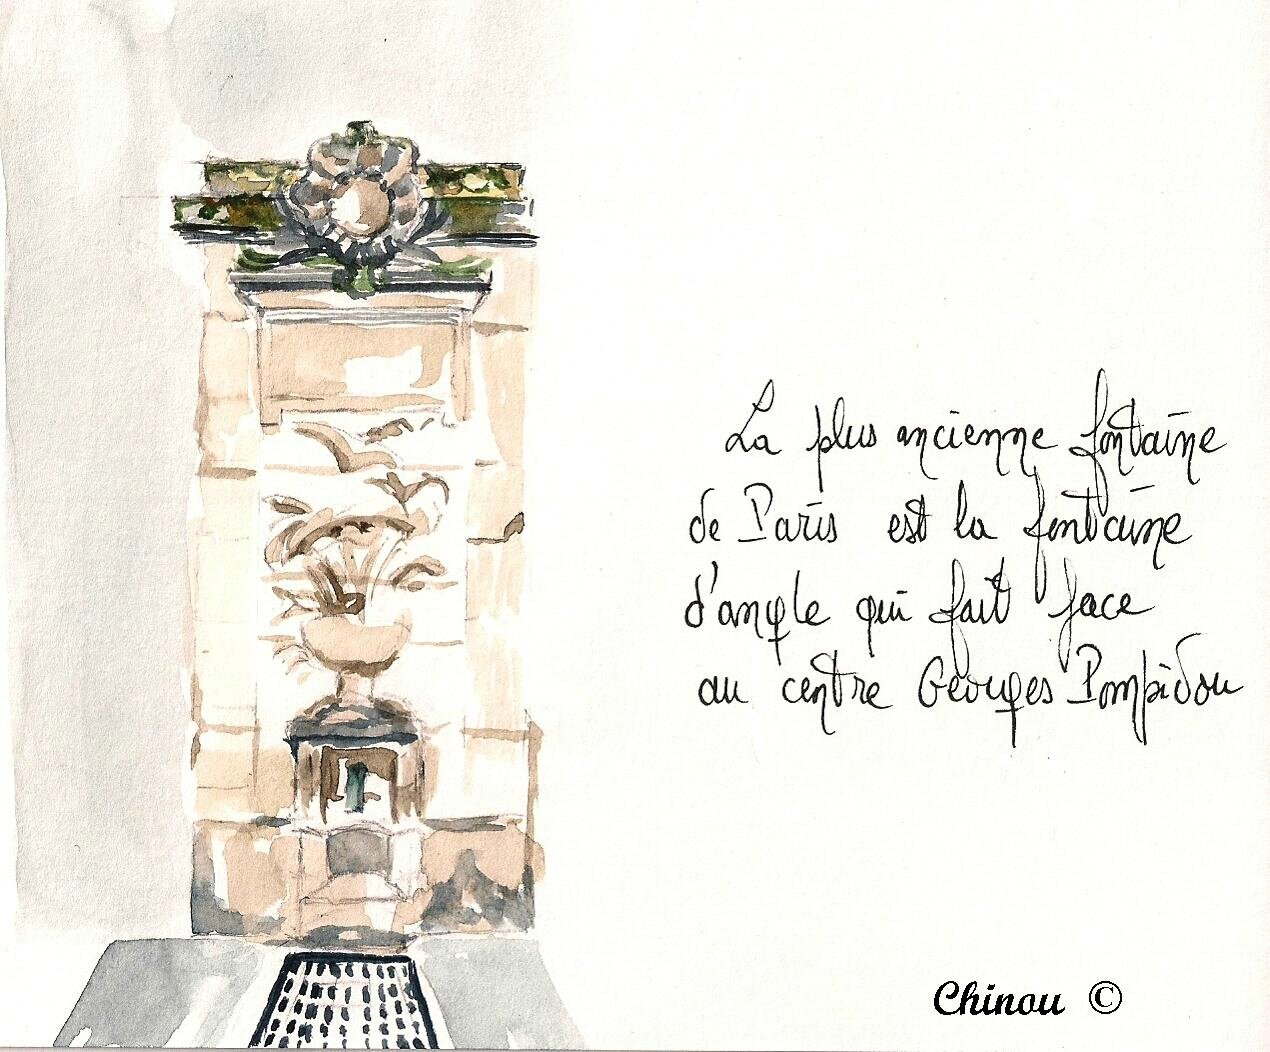 La plus ancienne fontaine
de Paris est la fontaine
d'angle qui fait face
au centre Georges Pompidou
Chinou ©